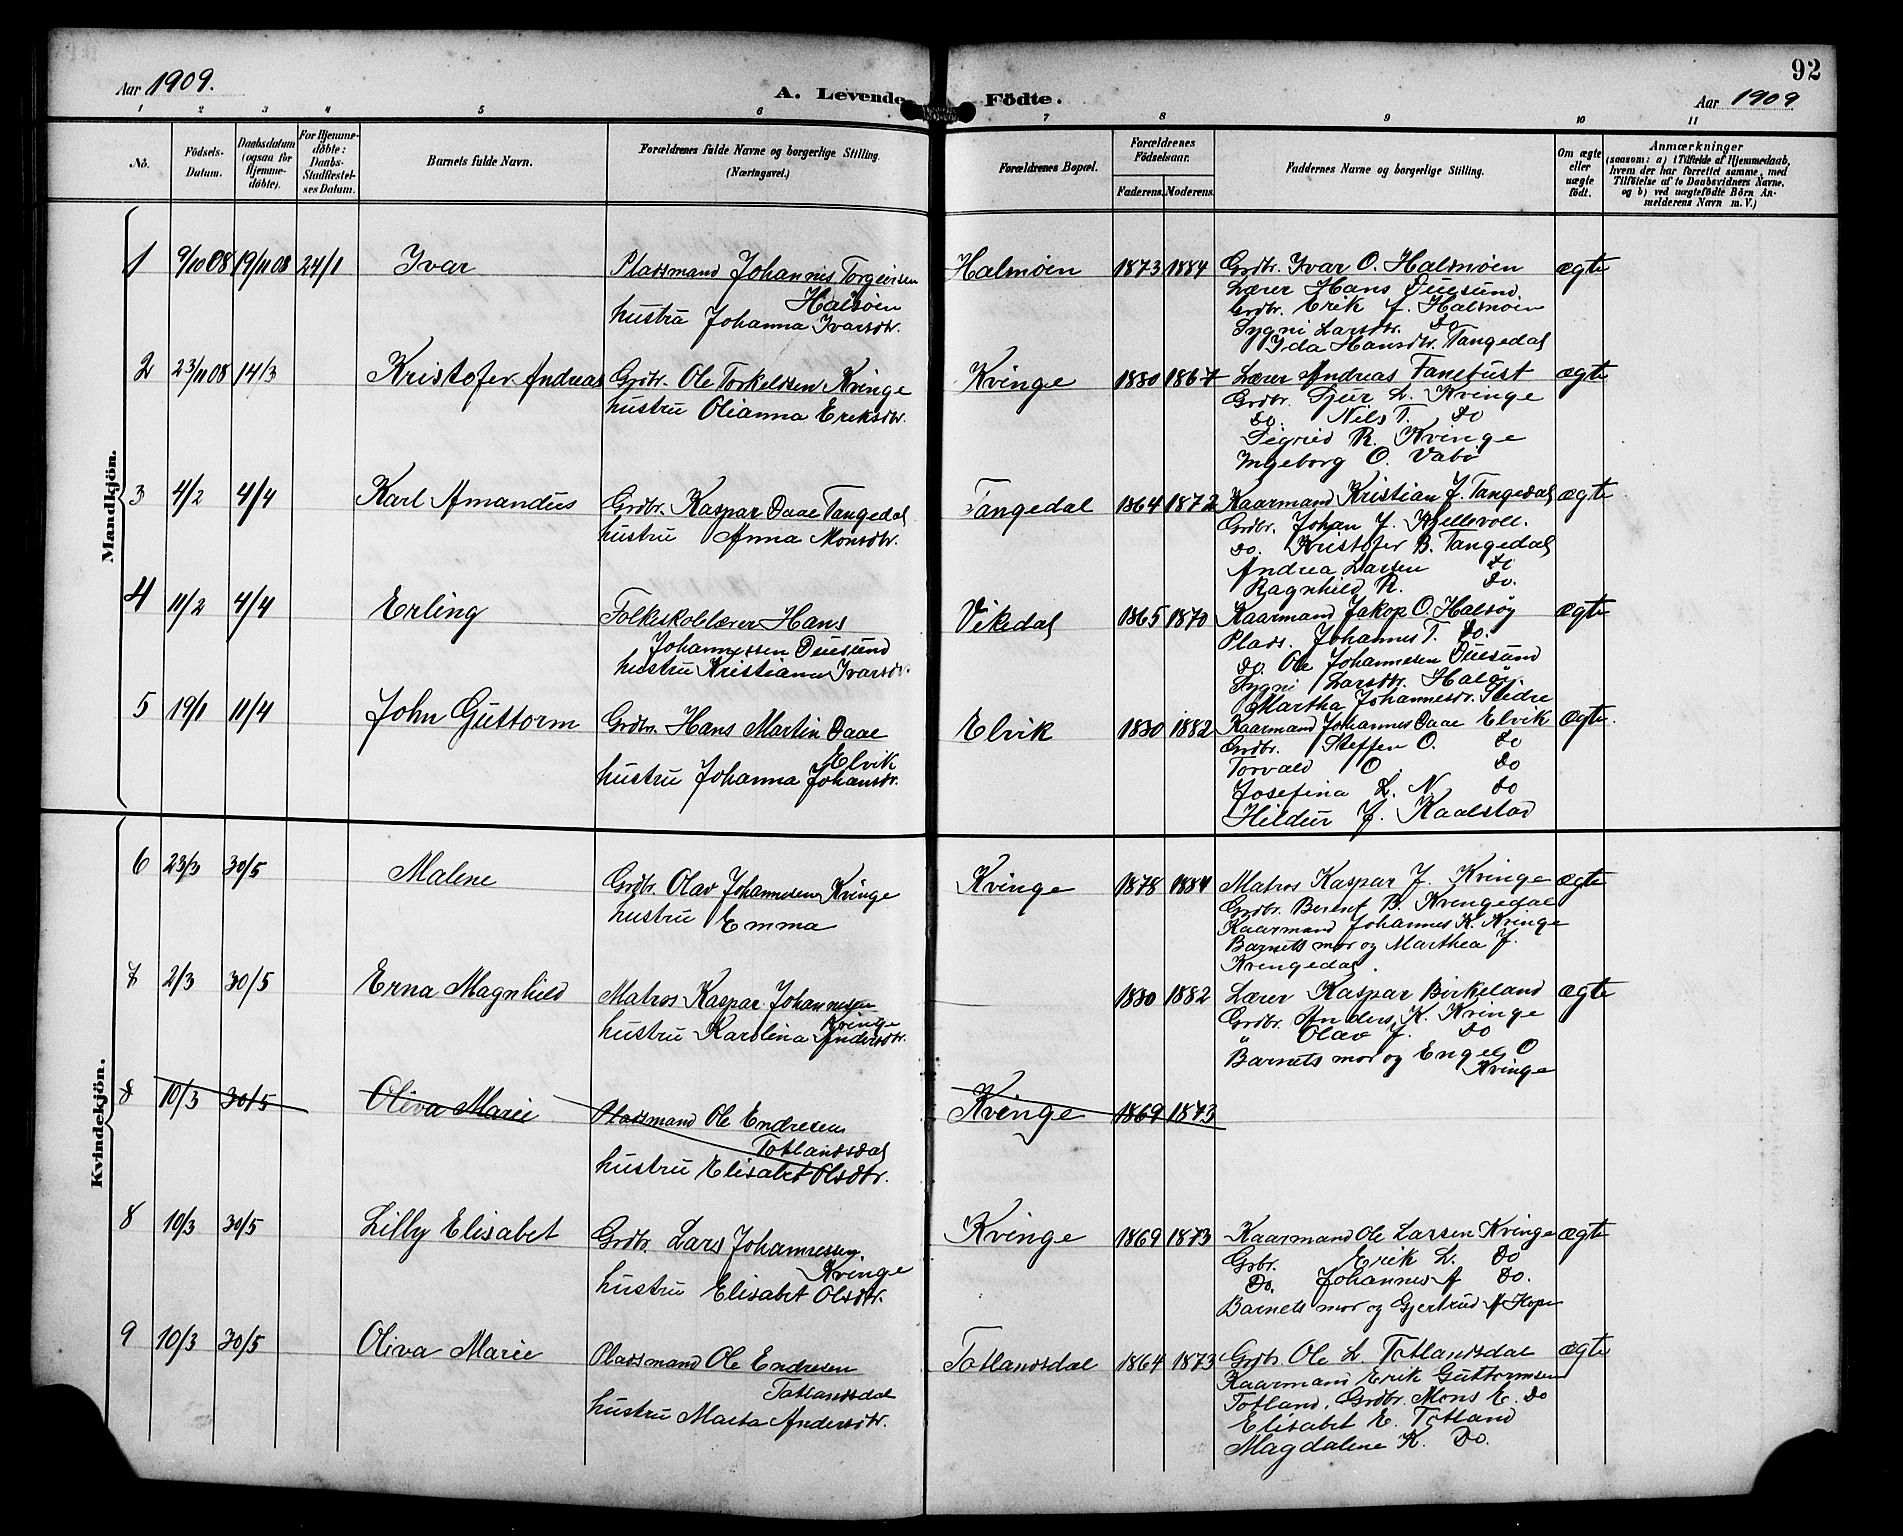 Aar 1909.
A. Levende Födte.
92
Aar 1909
1 2 3 4 5 6 7 8 9 10 11
No.
Födsels-Datum.
Daabsdatum (ogsaa for Hjemme-döbte).
For Hjemme-döbte: Daabs-Stadfæstel-ses Datum.
Barnets fulde Navn.
Forældrenes fulde Navne og borgerlige Stilling. (Næringsvei.)
Forældrenes Bopæl.
Forældrenes Födselsaar.
Faderens. Moderens.
Faddernes Navne og borgerlige Stilling.
Om ægte eller uægte födt.
Anmærkninger
(saasom: a) i Tilfælde af Hjemmedaab,
hvem der har forrettet samme, med
Tilföielse af to Daabsvidners Navne,
og b) ved uægtefödte Börn An-
melderens Navn m. V.)
Mandkjön.
1 9/10 08 19/11 08 24/1 Ivar Pladsmand Johannes Torgeirsen Halmöen 1873 1884 Grdbr. Ivar O. Halsmöen ægte
Halsöen
hustru Johanna Ivarsdtr.
Lærer Hans Duesund
Grdbr. Erik J. Halsmöen
Sygni Larsdtr. Do
Ida Hansdtr. Tangedal
2 23/11 08 14/3 Kristofer Andreas Grdbr. Ole Torkeldsen Kvinge Kvinge 1880 1867 Lærer Andreas Fanebust ægte
hustru Olianna Eriksdtr.
Grdbr. Sjur L. Kvinge
Do. Nils T. Do
Sigried R. Kvinge
Ingeborg O. Vabö
3 4/2 4/4 Karl Amandus Grdbr. Kaspar Daae Tangedal Tangedal 1864 1872 Kaarmand Kristian J. Tangedal ægte
hustru Anna Monsdtr.
Grdbr. Johan J. Kjellevoll.
Do. Kristofer B. Tangedal
Andrea Larsen Do
Ragnhild R. Do.
4 11/2 4/4 Erling Folkeskolelærer Hans Vikedal 1865 1870 Kaarmand Jakop O. Halsöy ægte
Johannessen Duesund
hustru Kristiana Ivarsdr.
Plads. Johannes T. Do.
Do. Ole Johannesen Duesund
Sygni Larsdtr. Halsöy
Martha Johannesdr. Slidre
5 19/1 11/4 John Guttorm Grdbr. Hans Martin Daae Elvik 1880 1882 Kaarmand Johannes Daae Elvik ægte.
Elvik
hustru Johanna Johansdr.
Grdbr. Steffen O. Do
Torvald O. Do
Josefina L. N. Do
Hildur J. Kaalstad
Kvindekjön.
6 23/3 30/5 Malene Grdbr. Olav Johannesen Kvinge Kvinge 1878 1884 Matros Kaspar J. Kvinge ægte
hustru Emma
Grdbr. Berent B. Kvingedal
Kaarmand Johannes K. Kvinge
Barnets mor og Marthea J.
Kvingedal.
7 2/3 30/5 Erna Magnhild Matros Kaspar Johannesen 1880 1882 Lærer Kaspar Birkeland ægte
Kvinge
hustru Karolina Andersdtr.
Grdbr. Anders K. Kvinge
" Olav J. Do
Barnets mor og Engel O
Kvinge
8 10/3 30/5 Oliva Marie Pladsmand Ole Endresen Kvinge 1869 1873
Totlandsdal
hustru Elisabet Olsdtr.
8 10/3 30/5 Lilly Elisabet Grdbr. Lars Johannessen. Kvinge 1869 1873 Kaarmand Ole Larsen Kvinge ægte
Kvinge
hustru Elisabet Olsdtr.
Grbr. Erik L. Do
Do. Johannes A Do.
Barnets mor og Gjertrud A Hope
9 10/3 30/5 Oliva Marie Pladsmand Ole Endresen Totlandsdal 1864 1873 Grdbr. Ole L. Totlandsdal ægte
Totlandsdal
hustru Marta Andersdtr.
Kaarmand Erik Guttormsen
Totland, Grdbr. Mons E. Do
Elisabet E. Totland
Magdalene K. Do.